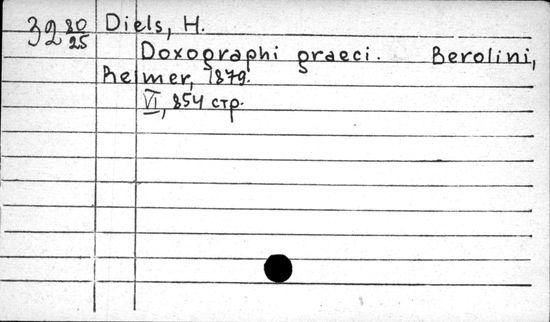 32 80/25 Diels, H.
Doxographi graeci. Berolini,
Reimer, 1879.
VI, 854 стр.